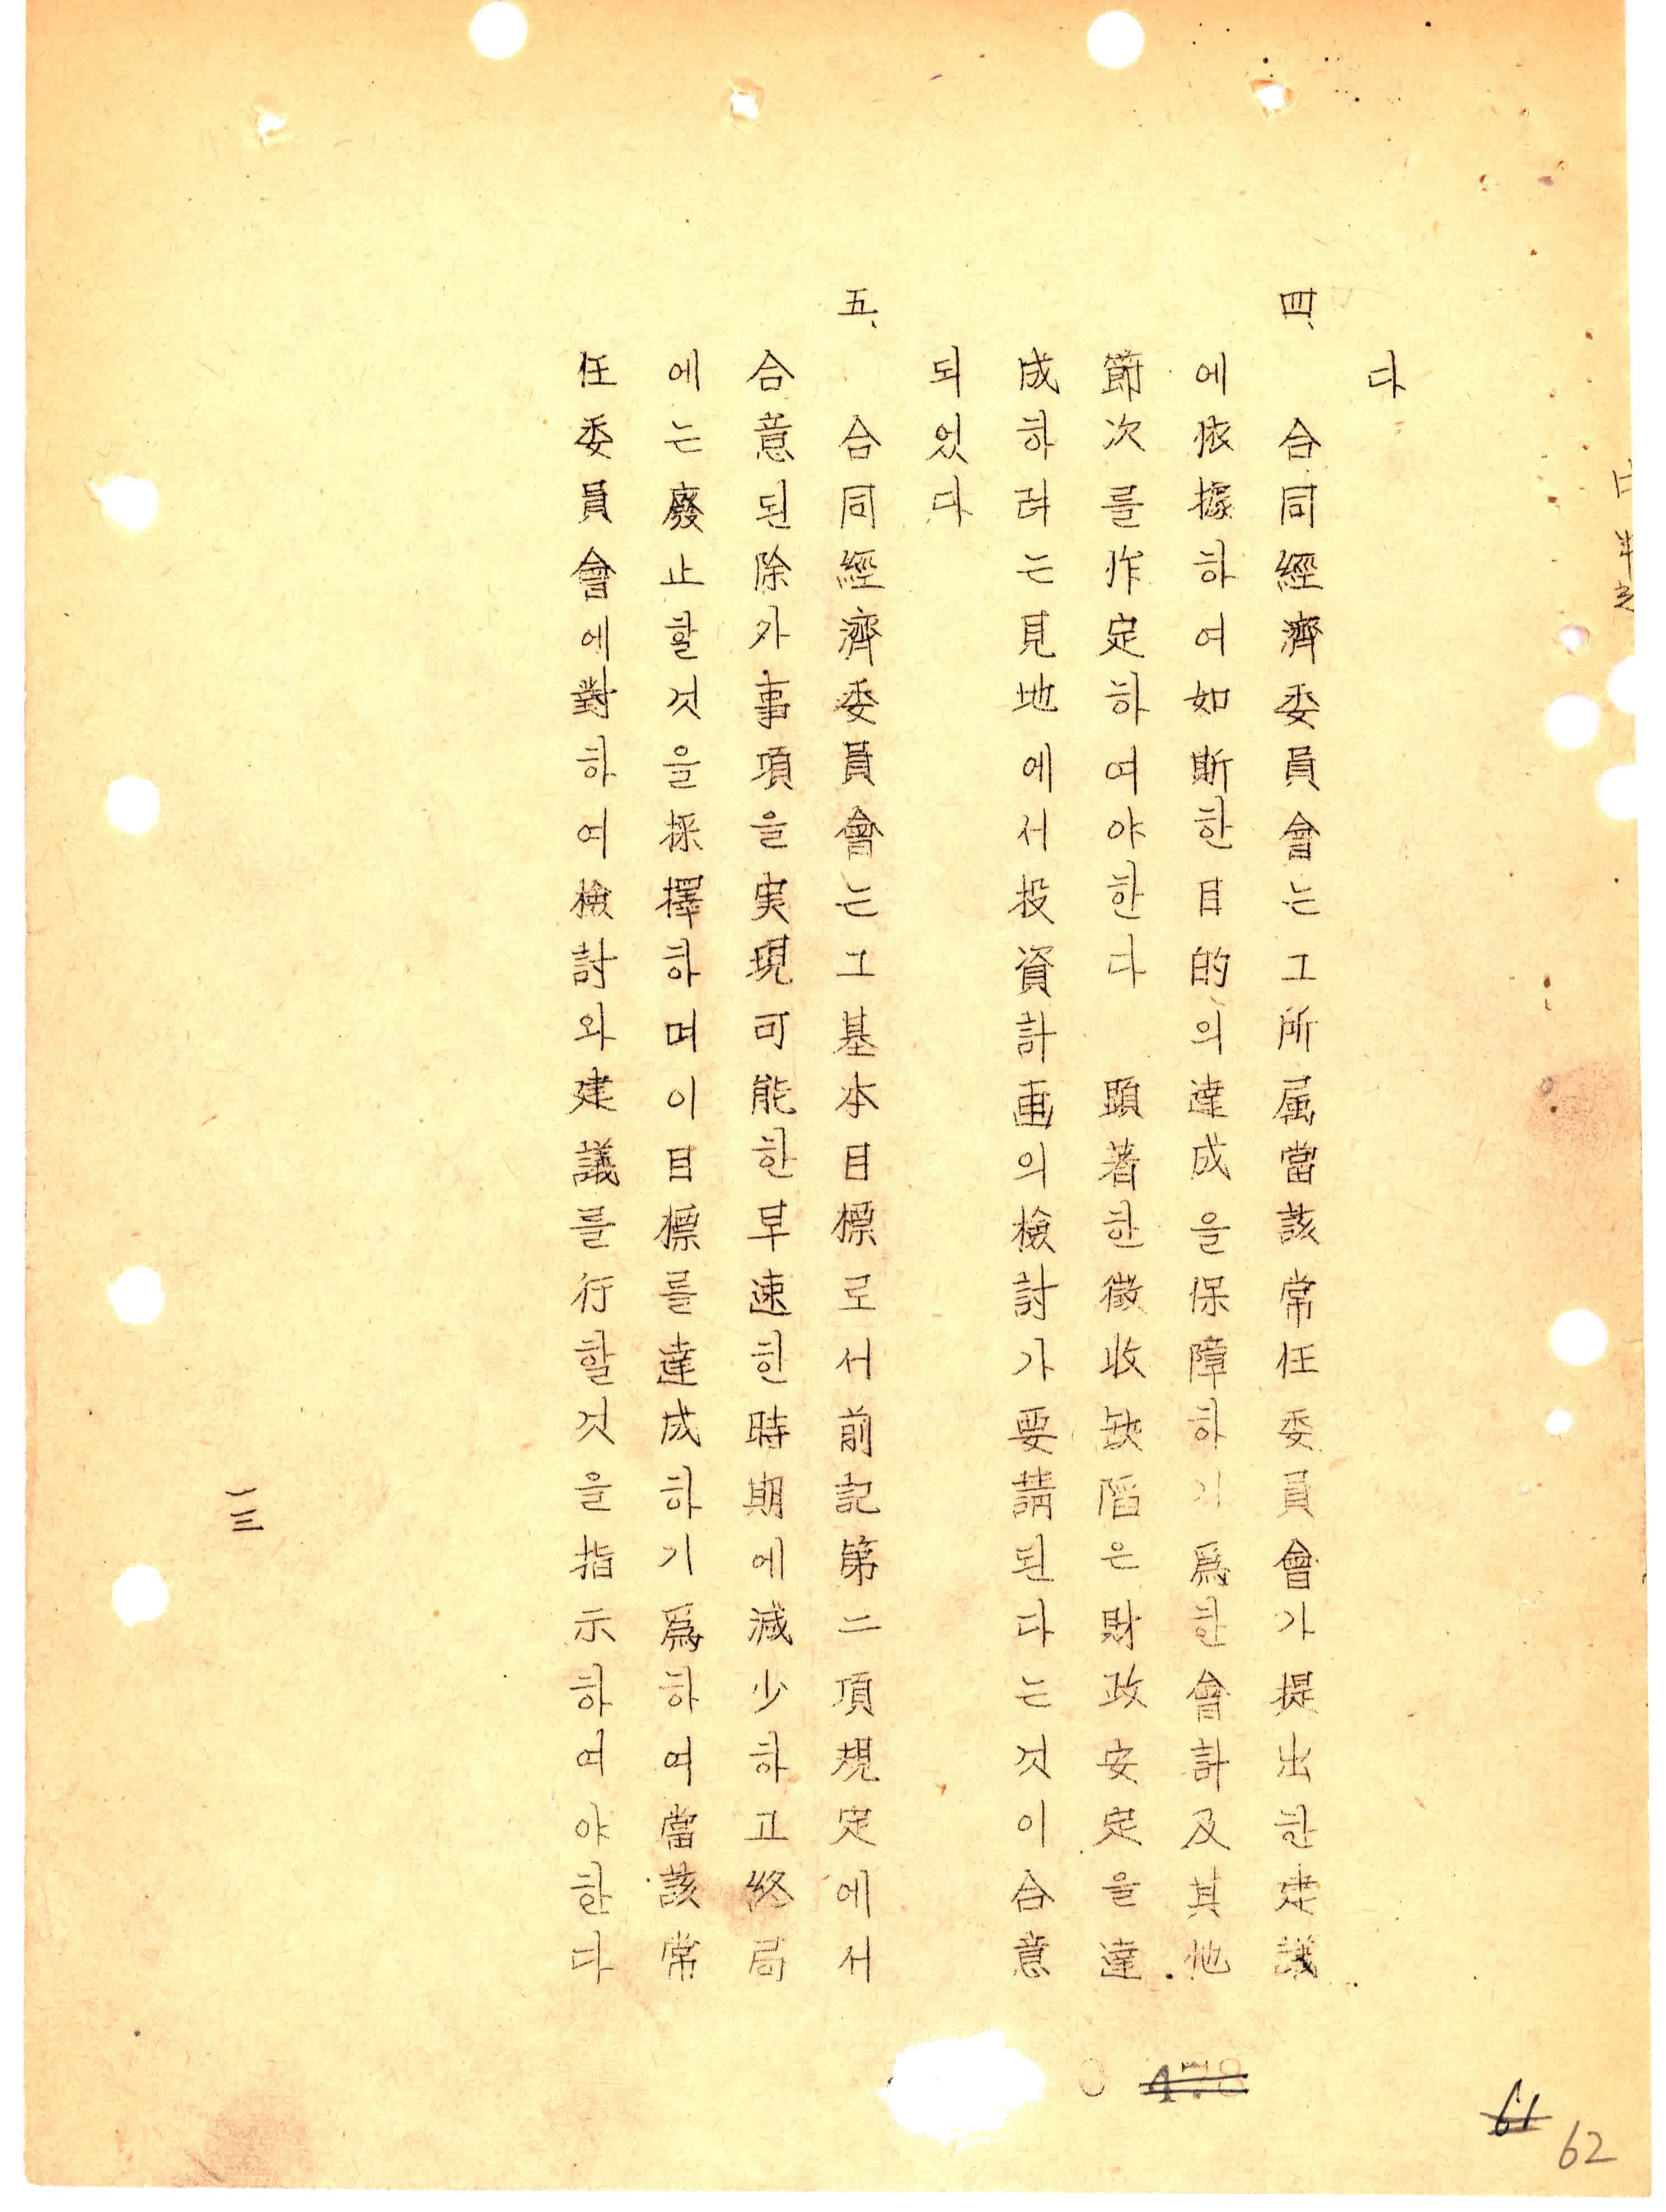 다
四、合同經濟委員會는그所属當該常任委員會가提出한建議
에依據하여如斯한目的의達成을保障하기爲한會計及其他
節次를作定하여야한다 顕著한徵收缺陷은財政安定을達
成하려는見地에서投資計画의檢討가要請된다는것이合意
되었다
五、合同經濟委員會는그基本目標로서前記第二項規定에서
合意된除外事項을実現可能한早速한時期에減少하고終局
에는廢止할것을採擇하며이目標를達成하기爲하여當該常
任委員會에對하여檢討와建議를行할것을指示하여야한다
一三
61
62